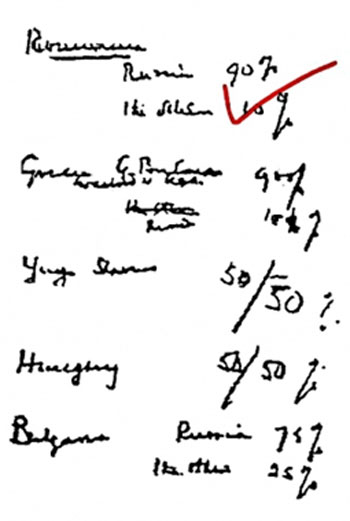 Roumania
Russia 90%
The others 10%
Greece G. Britain 90%
in accord with USA
Russia 10%
Yugoslavia 50/50%
Hungary 50/50%
Bulgaria Russia 75%
The others 25%